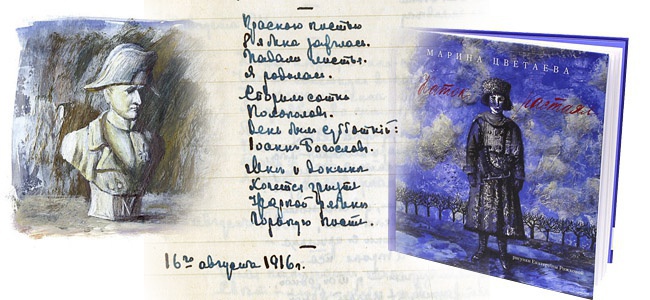 Красною кистью
Рябина зажглась.
Падали листья.
Я родилась.
Спорили сотни
Колоколов.
День был субботній:
Іоаннъ Богословъ.
Мнѣ и донынѣ
Хочется грызть
Жаркой рябины
Горькую кисть.
16го августа 1916г.
МАРИНА ЦВЕТАЕВА
Каток растаял
рисунки Екатерины